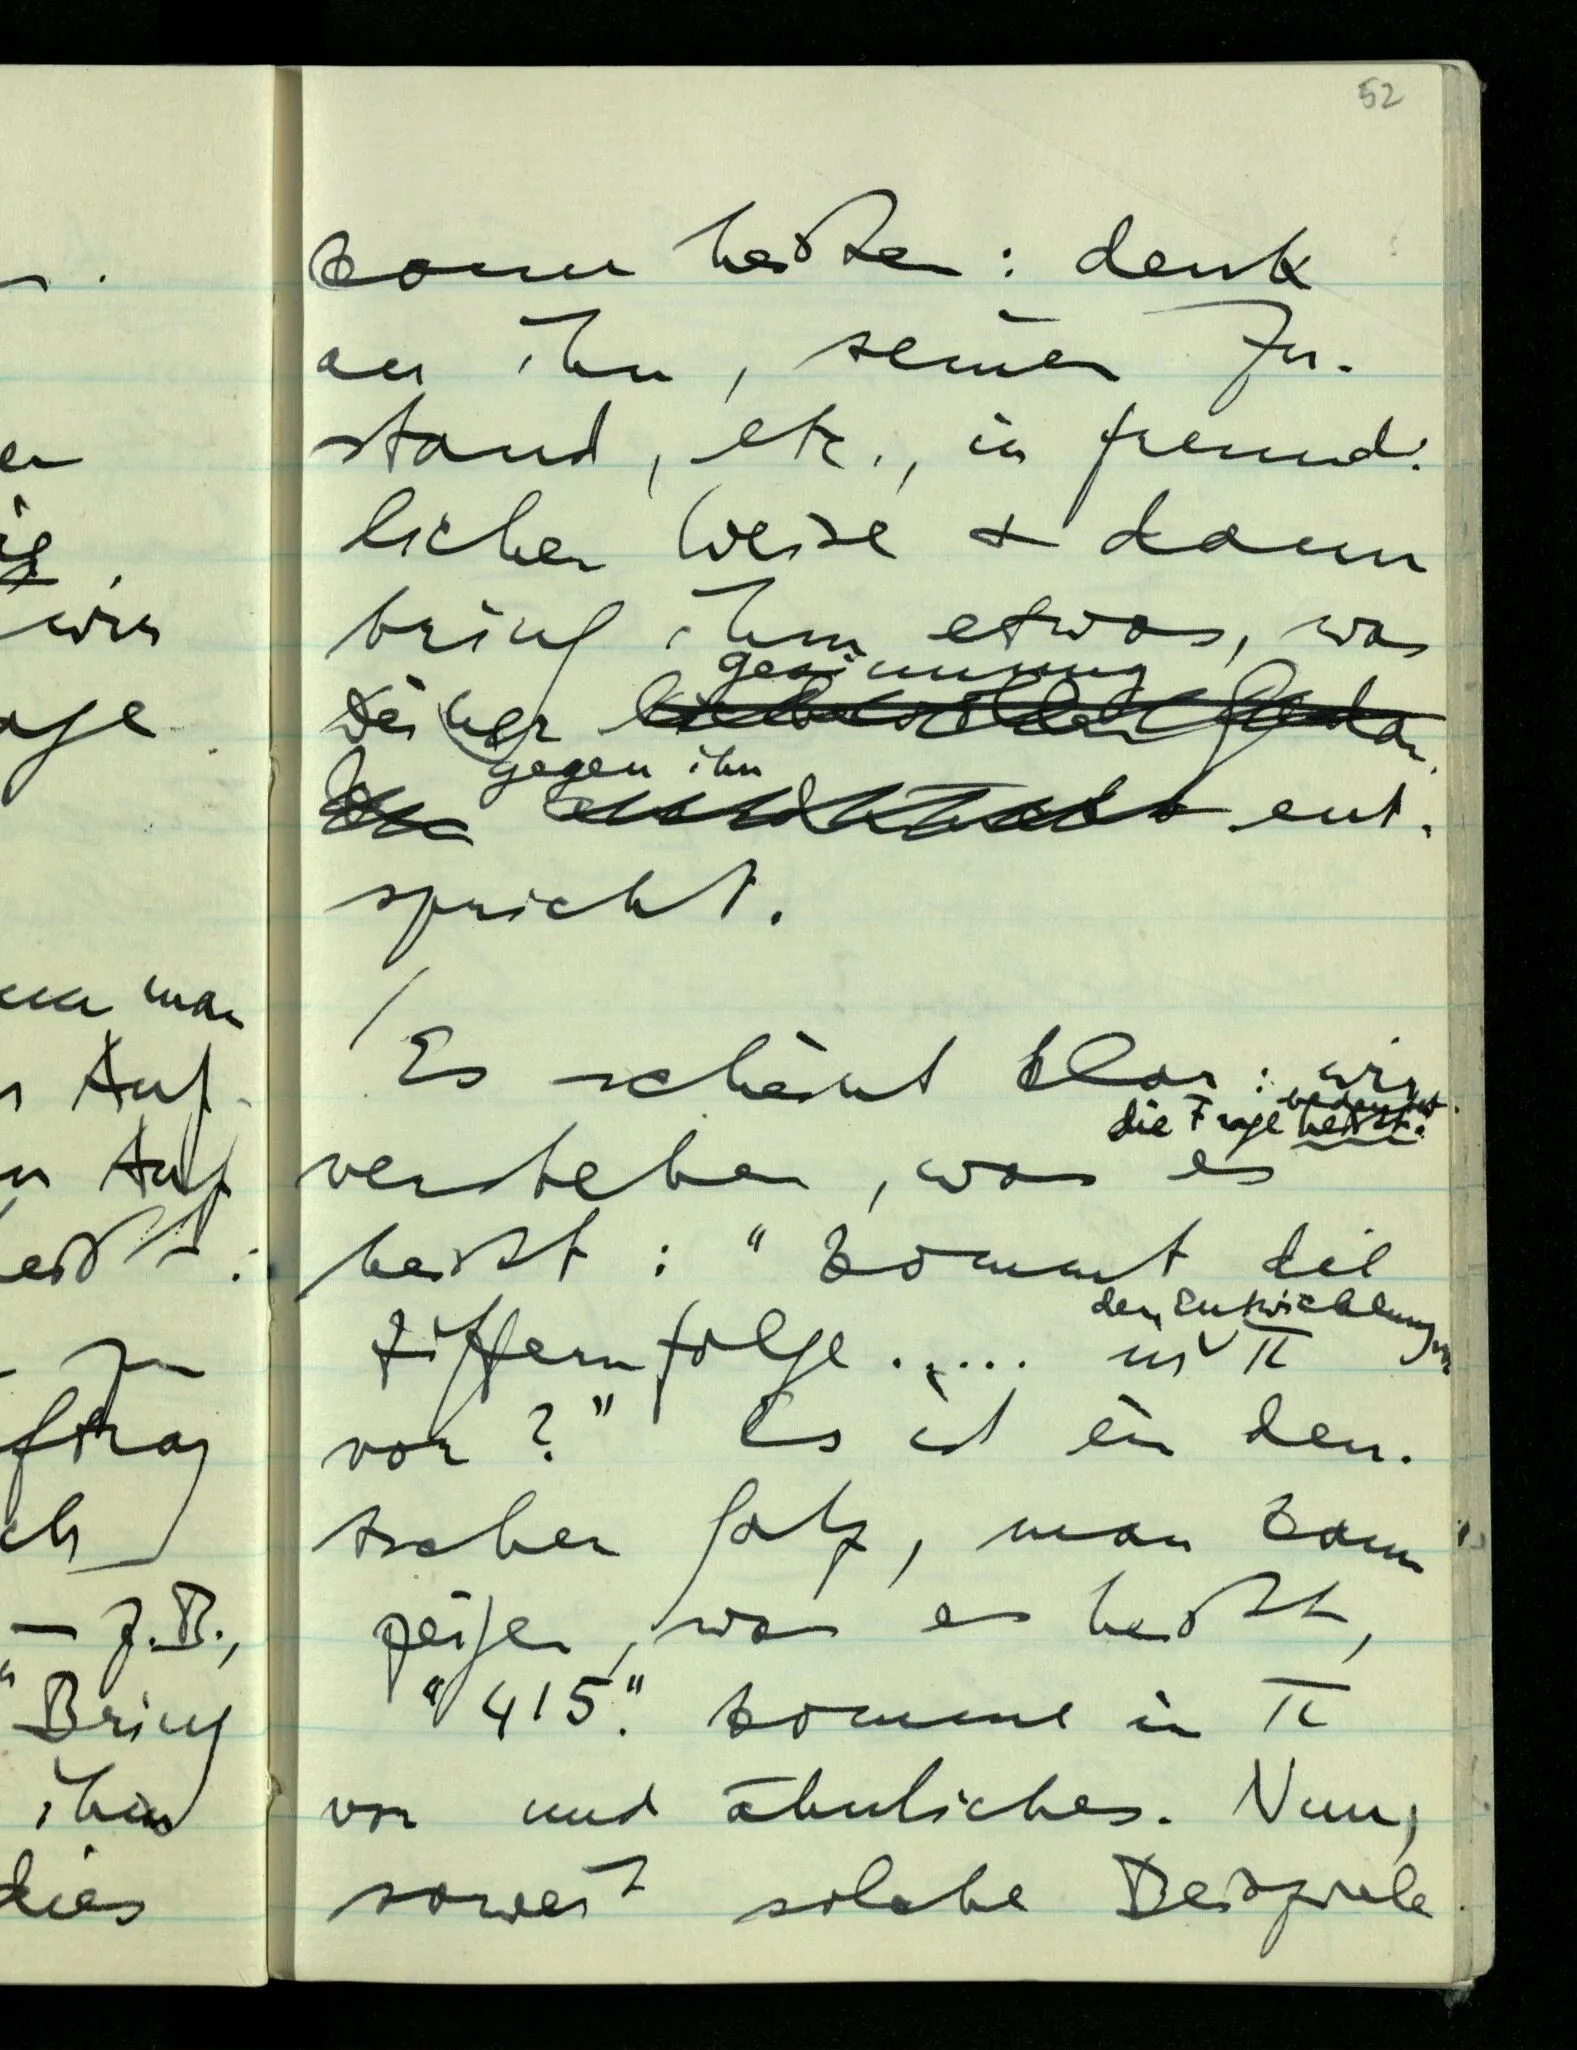 52
kann heißen: denk
an ihn, seinen Zu-
stand, etc., in freund-
licher Weise & dann
bring ihm etwas, was
Gesinnung
Deiner
gegen ihn
ent-
spricht.
/ Es scheint klar: wir
die Frage bedeutet heißt:
verstehen, was es
heißt: "Kommt die
der Entwicklung von
Ziffernfolge ..... in π
vor?" Es ist ein deu-
tscher Satz, man kann
zeigen, was es heißt,
"415" komme in π
vor und ähnliches. Nun,
soweit solche Beispiele
er
ig,
wir
age
man
Auf-
Auf
eißt:
zu
ftrag
ch
— z.B.,
"Bring
ihm
dies